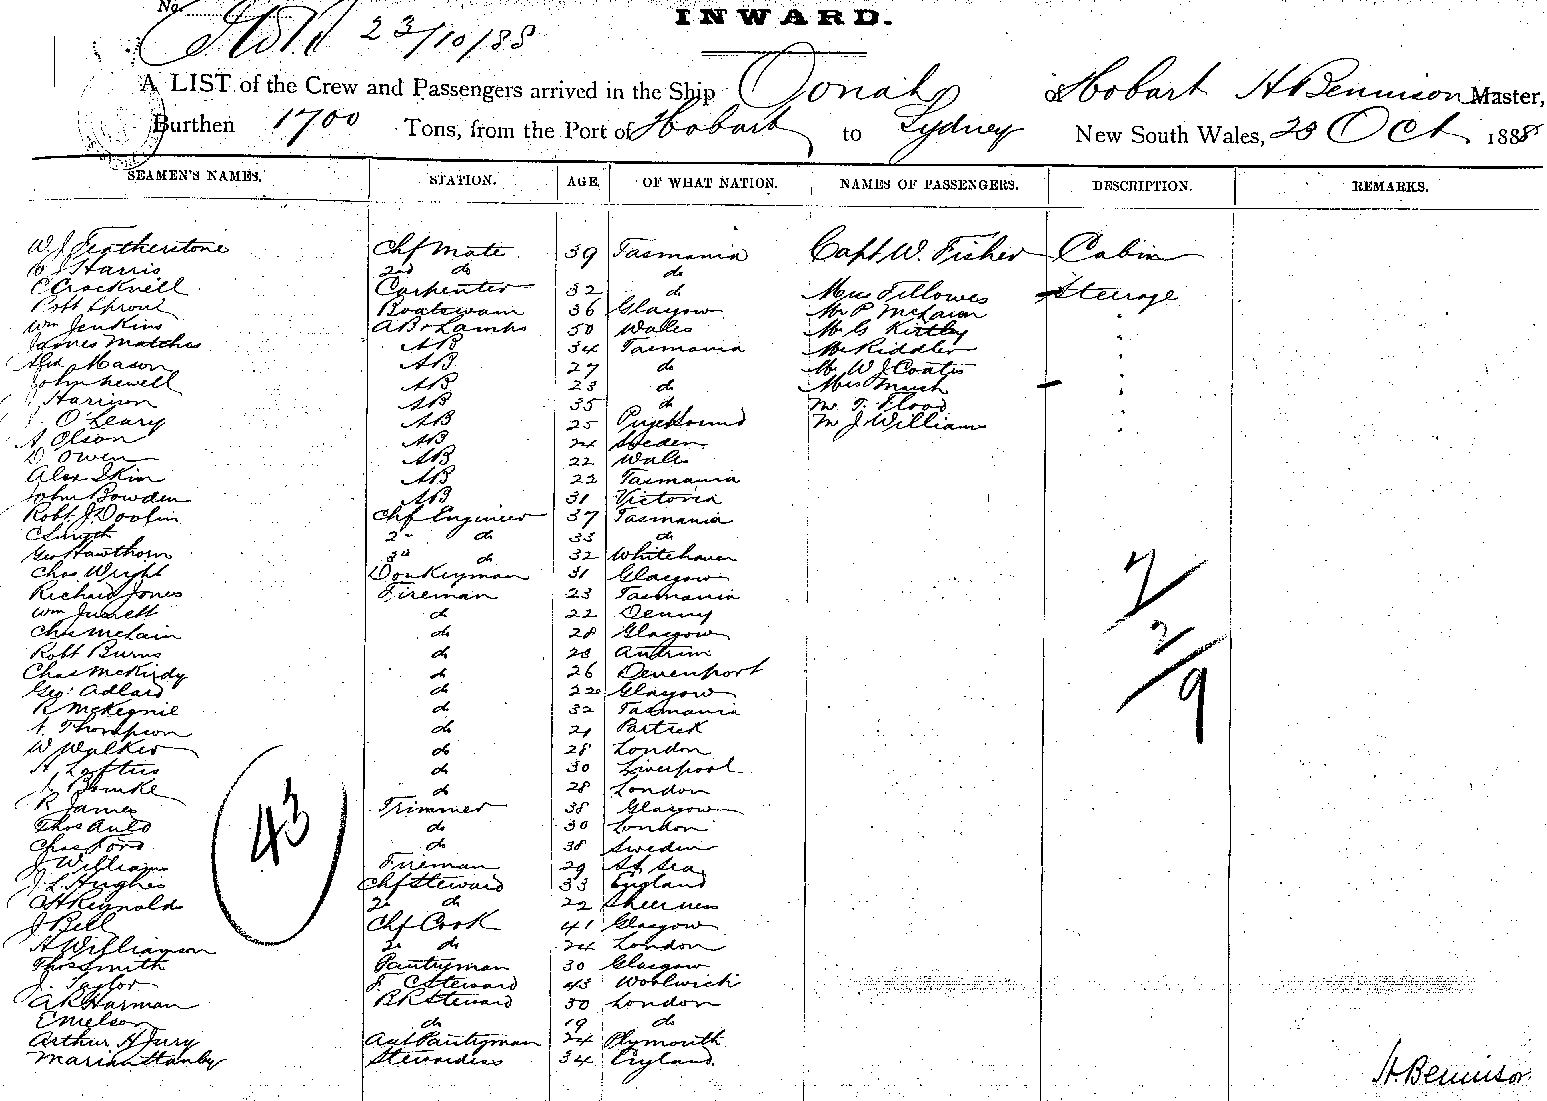 No
23/10/88
INWARD.
A LIST of the Crew and Passengers arrived in the Ship of Hobart H Bennison Master,
Burthen 1700 Tons, from the Port of Hobart to Sydney New South Wales, 23 Oct 1888
SEAMEN'S NAMES. STATION. AGE. OF WHAT NATION. NAMES OF PASSENGERS. DESCRIPTION. REMARKS.
W J Featherstone Chf Mate 39 Tasmania Capt W. Fisher Cabin
Harris 2nd do do
C Cracknell Carpenter 32 do Mrs Fellowes Steerage
Robt Sproul Boatswain 36 Glasgow Mr P McLaren "
Wm Jenkins AB & Lamps 50 Wales Mr G Kirtley "
James AB 34 Tasmania Mr Riddler "
Mason AB 27 do Mr W J Coates "
John Newell AB 23 do Mrs Marsh "
Harrison AB 35 do Mr T. Flood "
O'Leary AB 25 Mr J William "
A Olson AB 24 Sweden
D Owen AB 22 Wales
Alex Skin AB 22 Tasmania
John Bowden AB 31 Victoria
Robt J Doolin Chf Engineer 37 Tasmania
C Smyth 2 do 33 do
Geo Hawthorn 3rd do 32 Whitehaven
Chas Wright Donkeyman 31 Glasgow
Richard Jones Fireman 23 Tasmania
Wm do 22 Denny
Chas McLain do 28 Glasgow
Robt Burns do 23 Antrim
Chas McKirdy do 26 Devenport
Geo Adlard do 22 Glasgow
R McKegnie do 32 Tasmania
Thompson do 21 Partick
W Walker do 28 London
A Loftus do 30 Liverpool
do 28 London
R James Trimmer 38 Glasgow
Thos Auld do 30 London
Chas Ford do 38 Sweden
J Williams Fireman 29 At Sea
J L Hughes Chf Steward 33 England
H Reynolds 2 do 22 Sheerness
J Bell Chf Cook 41 Glasgow
A Williamson 2 do 24 London
Thos Smith Pantryman 30 Glasgow
J. Taylor F. C Steward 43 Woolwich
A R Harman BR Steward 30 London
E Nelson do 19 do
Arthur H Jury Ast Pantryman 24 Plymouth
Marian Hanby Stewardess 34 England
43
7
2/9
H. Bennison